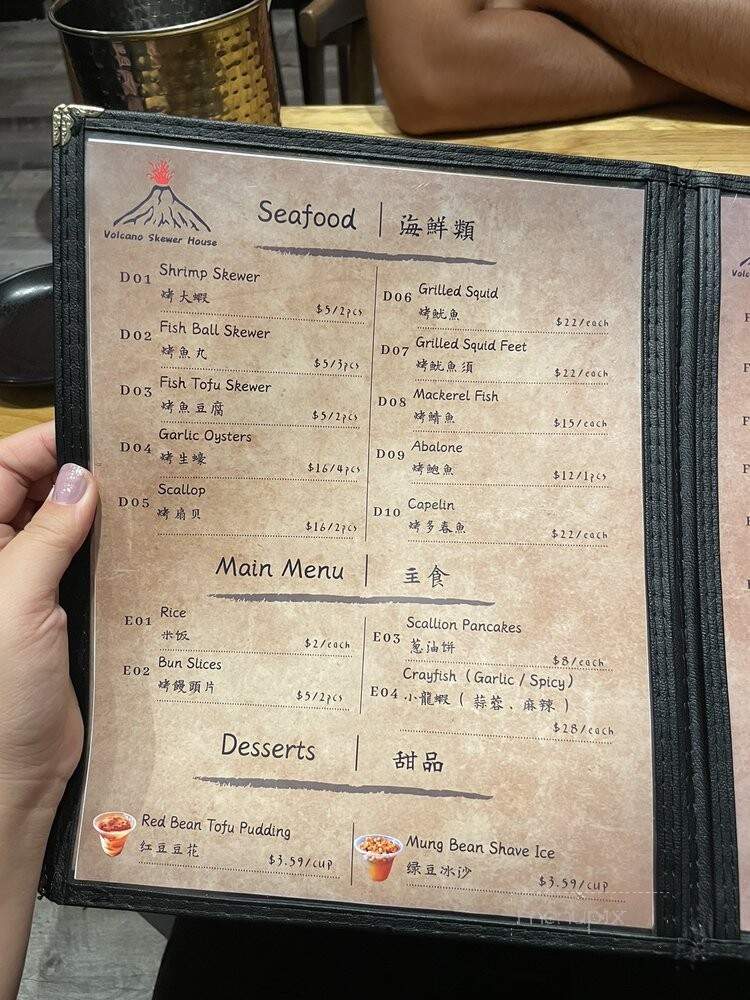 Volcano Skewer House
Seafood | 海鮮類
D01 Shrimp Skewer
烤大蝦
$5/2pcs
D02 Fish Ball Skewer
烤魚丸
$5/3pcs
D03 Fish Tofu Skewer
烤魚豆腐
$5/2pcs
D04 Garlic Oysters
烤生蠔
$16/4pcs
D05 Scallop
烤扇贝
$16/2pcs
D06 Grilled Squid
烤魷魚
$22/each
D07 Grilled Squid Feet
烤魷魚須
$22/each
D08 Mackerel Fish
烤鯖魚
$15/each
D09 Abalone
烤鮑魚
$12/1pcs
D10 Capelin
烤多春魚
$22/each
Main Menu | 主食
E01 Rice
米饭
$2/each
E02 Bun Slices
烤饅頭片
$5/2pcs
E03 Scallion Pancakes
葱油饼
$8/each
E04 Crayfish (Garlic / Spicy)
小龍蝦 ( 蒜蓉 、麻辣 )
$28/each
Desserts | 甜品
Red Bean Tofu Pudding
红豆豆花
$3.59/cup
Mung Bean Shave Ice
绿豆冰沙
$3.59/cup
menupix